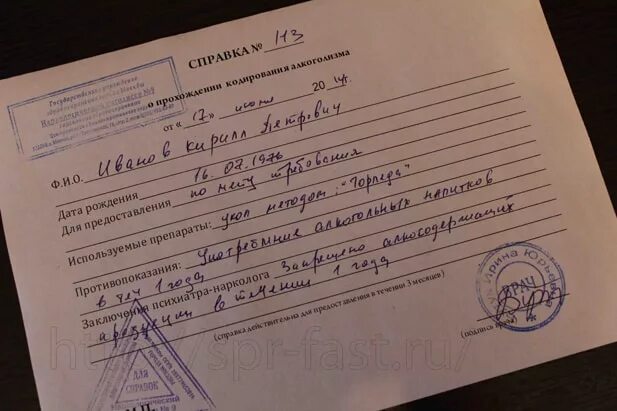 Государственное учреждение
СПРАВКА № 113
о прохождении кодирования алкоголизма
от « 17 » июня 20 14 г.
Ф.И.О. Иванов Кирилл Петрович
Дата рождения 16.07.1976
Для предоставления по месту требования
Используемые препараты: укол методом: "Торпеда"
Противопоказания: Употребление алкогольных напитков
в теч 1 года
Заключения психиатра-нарколога Запрещено алкосодержащих
в течении 1 года
(справка действительно для предоставления в течении 3 месяцев)
(подпись врача)
Ирина Юрьевна
ВРАЧ
ДЛЯ
СПРАВОК
М.П.
http://spr-fast.ru/